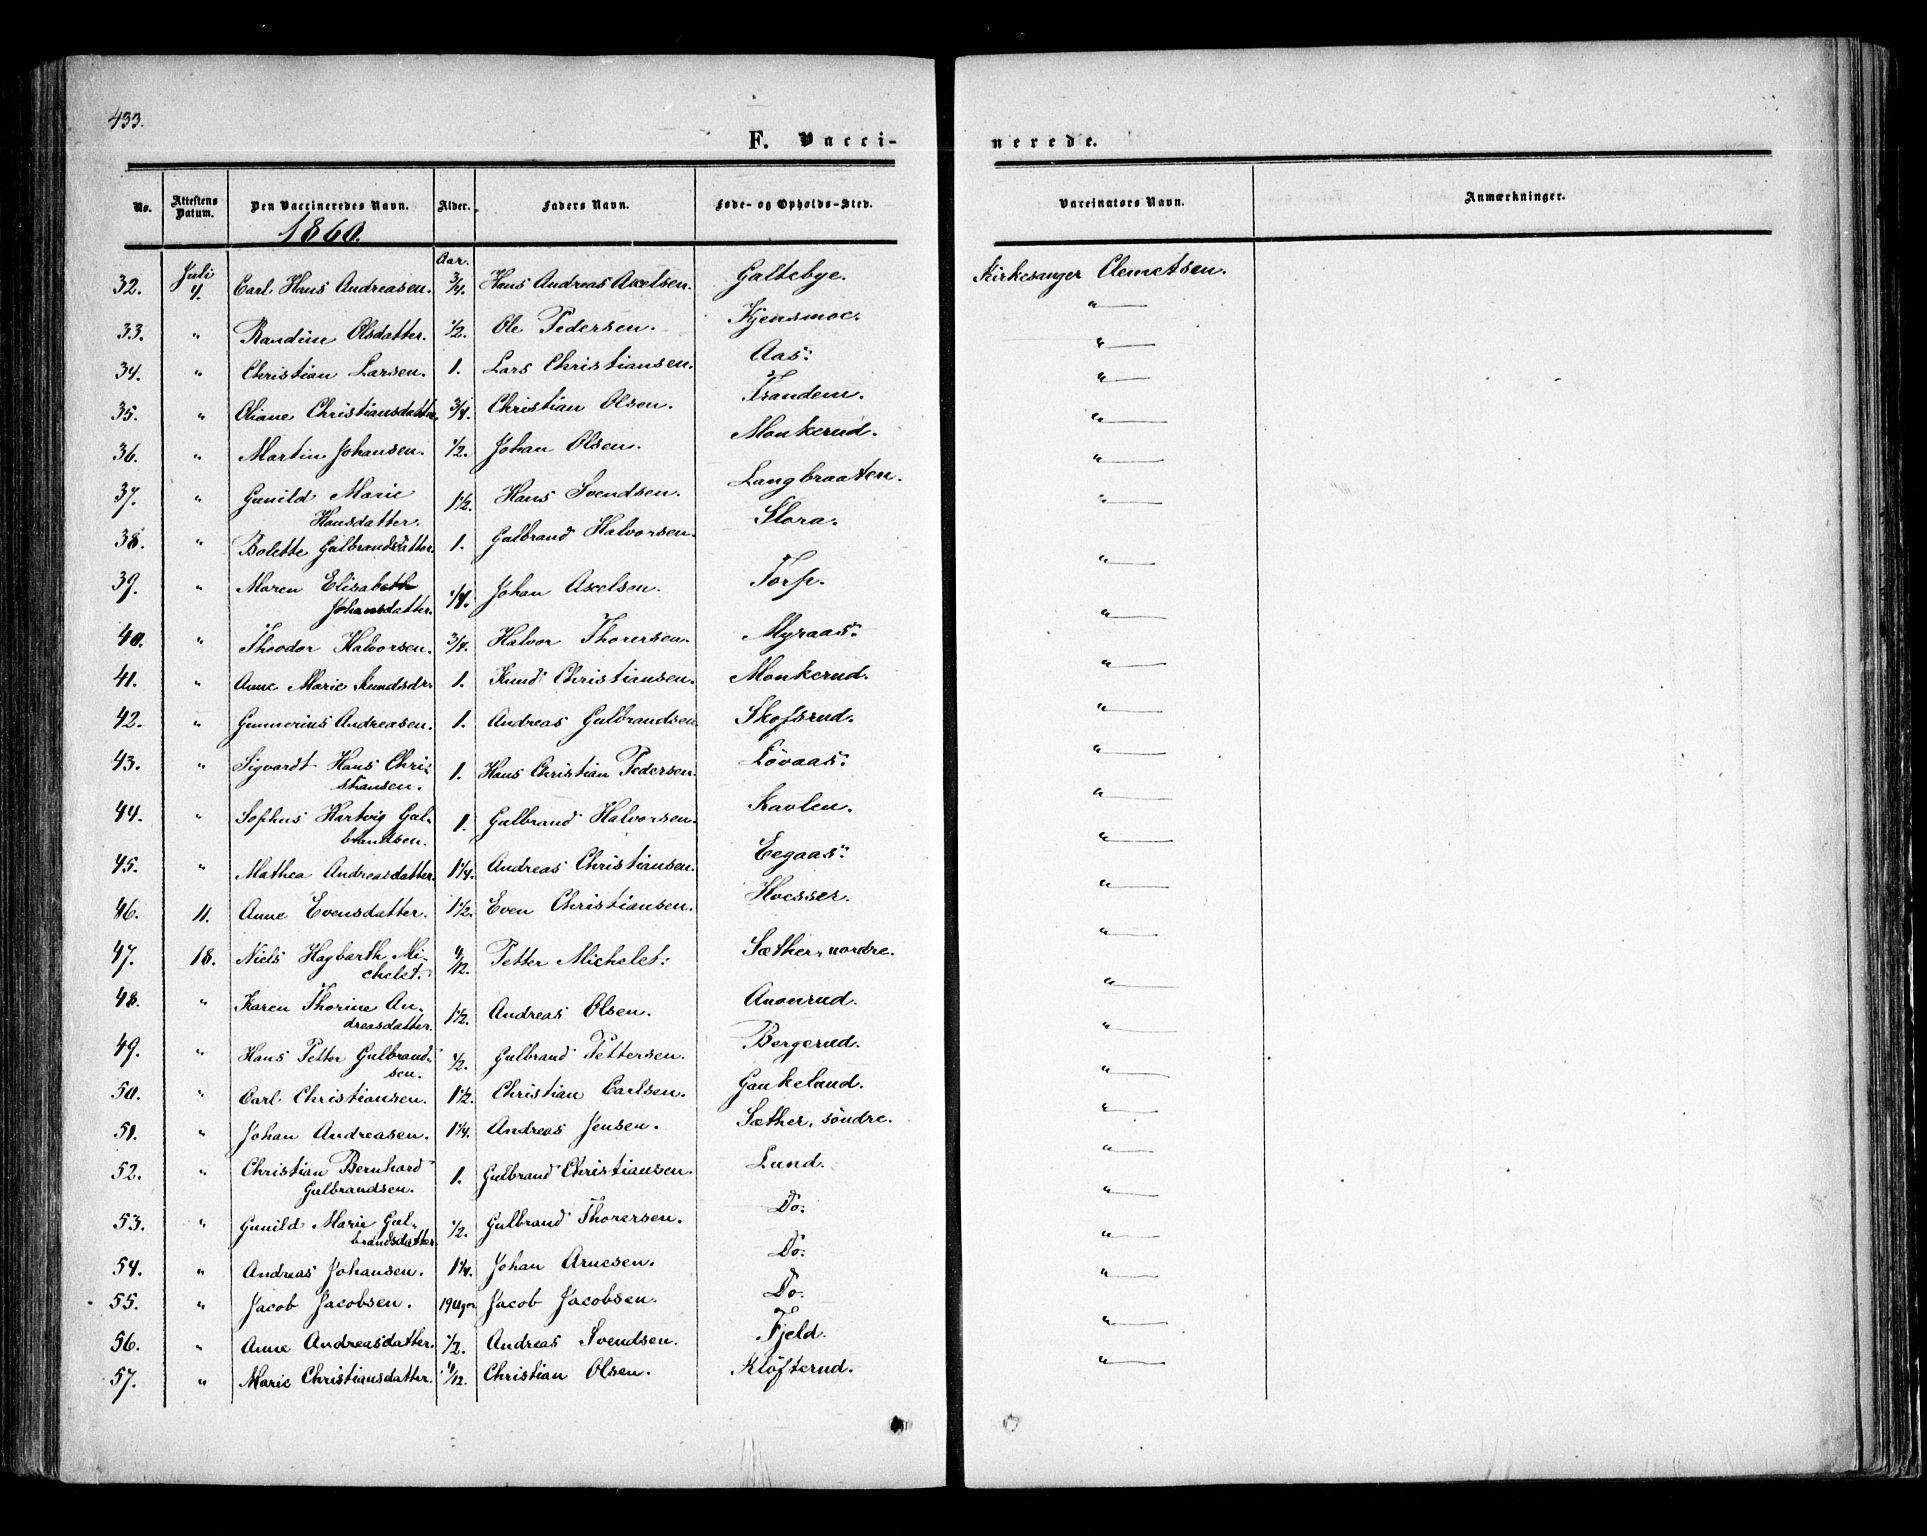 433.
F. Vacci-
nerede.
No. Attestens Datum. Den Vaccineredes Navn. Alder. Faders Navn. Føde- og Opholds-Sted. Vaccinators Navn. Anmærkninger.
1860.
Aar.
32. Juli 4. Carl Hans Andreasen. 3/4. Hans Andreas Axelsen. Galtebye. Kirkesanger Clemetsen.
33. " Randine Olsdatter. 1/2. Ole Pedersen. Kjensmoe. "
34. " Christian Larsen. 1. Lars Christiansen. Aas: "
35. " Oliane Christiansdatter. 3/4. Christian Olsen. Trandem. "
36. " Martin Johansen. 1/2. Johan Olsen. Monkerud. "
37. " Gunild Marie 1 1/2. Hans Svendsen. Langbraaten. "
Hansdatter.
38. " Bolette Gulbrandsdatter. 1. Gulbrand Halvorsen. Slora. "
39. " Maren Elisabeth 1/4. Johan Axelsen. Torp. "
Johansdatter.
40. " Theodor Halvorsen. 3/4. Halvor Thorersen. Myraas: "
41. " Anne Marie Knudsdr. 1. Knud Christiansen. Monkerud. "
42. " Gunnerius Andreasen. 1. Andreas Gulbrandsen. Skofsrud. "
43. " Sigvardt Hans Chri- 1. Hans Christian Pedersen. Lövaas: "
stiansen.
44. " Sophus Hartvig Gul- 1. Gulbrand Halvorsen. Kavlen. "
brandsen.
45. " Mathea Andreasdatter. 1 1/4. Andreas Christiansen. Eegaas: "
46. 11. Anne Evensdatter. 1 1/2. Even Christiansen. Hoesser. "
47. 18. Niels Hagbarth Mi- 4/12. Petter Michelet: Sæther, nordre. "
chelet.
48. " Karen Thorine An- 1 1/2. Andreas Olsen. Anonrud. "
dreasdatter.
49. " Hans Petter Gulbrand- 1/2. Gulbrand Pettersen. Bergerud. "
sen.
50. " Carl Christiansen. 1 1/2. Christian Carlsen. Gaukeland. "
51. " Johan Andreasen. 1 1/4. Andreas Jensen. Sæther, söndre. "
52. " Christian Bernhard 1. Gulbrand Christiansen. Lund. "
Gulbrandsen.
53. " Gunild Marie Gul- 1/2. Gulbrand Thorersen. Do: "
brandsdatter.
54. " Andreas Johansen. 1 1/4. Johan Arnesen. Do: "
55. " Jacob Jacobsen. 19 Uger Jacob Jacobsen. Do: "
56. " Anne Andreasdatter. 1/2. Andreas Svendsen. Fjeld. "
57. " Marie Christiansdatter. 4/12. Christian Olsen. Klöfterud. "